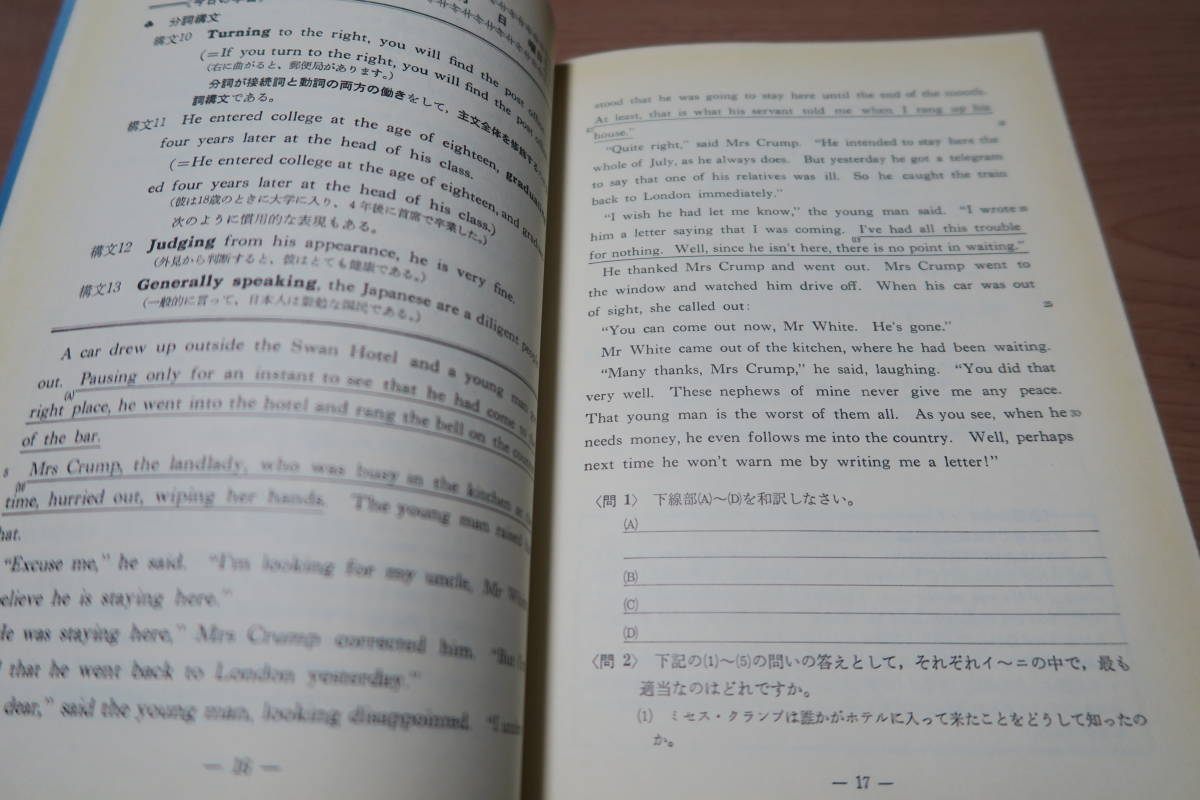 ♣ 分詞構文
構文10 Turning to the right, you will find the post office.
(=If you turn to the right, you will find the post
(右に曲がると、郵便局があります。)
分詞が接続詞と動詞の両方の働きをして，主文全体を修飾する
詞構文である。
構文11 He entered college at the age of eighteen,
four years later at the head of his class.
(=He entered college at the age of eighteen, and
ed four years later at the head of his class.)
(彼は18歳のときに大学に入り、4年後に首席で卒業した。)
次のように慣用的な表現もある。
構文12 Judging from his appearance, he is very fine.
(外見から判断すると、彼はとても健康である。)
構文13 Generally speaking, the Japanese are a diligent
(一般的に言って、日本人は勤勉な国民である。)
A car drew up outside the Swan Hotel and a young man
out. Pausing only for an instant to see that he had come to
(A)
right place, he went into the hotel and rang the bell on the
of the bar.
5 Mrs Crump, the landlady, who was busy in the kitchen at
(B)
time, hurried out, wiping her hands. The young man raised
hat.
"Excuse me," he said. "I'm looking for my uncle, Mr
believe he is staying here."
He was staying here," Mrs Crump corrected him. "But
that he went back to London yesterday."
dear," said the young man, looking disappointed. "I
— 16 —
stood that he was going to stay here until the end of the month.
At least, that is what his servant told me when I rang up his
house."
"Quite right," said Mrs Crump. "He intended to stay here the
whole of July, as he always does. But yesterday he got a telegram
to say that one of his relatives was ill. So he caught the train
back to London immediately."
"I wish he had let me know," the young man said. "I wrote
him a letter saying that I was coming. I've had all this trouble
(D)
for nothing. Well, since he isn't here, there is no point in waiting."
He thanked Mrs Crump and went out. Mrs Crump went to
the window and watched him drive off. When his car was out
of sight, she called out: 25
"You can come out now, Mr White. He's gone."
Mr White came out of the kitchen, where he had been waiting.
"Many thanks, Mrs Crump," he said, laughing. "You did that
very well. These nephews of mine never give me any peace.
That young man is the worst of them all. As you see, when he 30
needs money, he even follows me into the country. Well, perhaps
next time he won't warn me by writing me a letter!"
〈問 1〉 下線部(A)～(D)を和訳しなさい。
(A)
(B)
(C)
(D)
〈問 2〉 下記の(1)～(5)の問いの答えとして，それぞれイ～ニの中で，最も
適当なのはどれですか。
(1) ミセス・クランプは誰かがホテルに入って来たことをどうして知ったの
か。
— 17 —